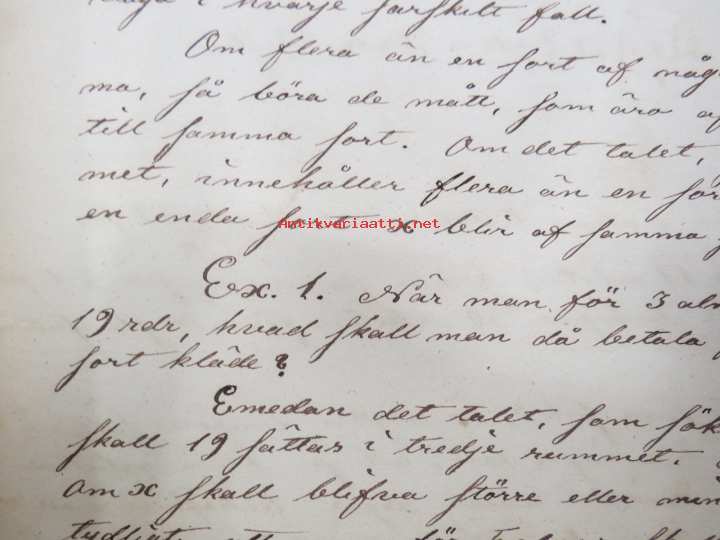 i hvarje särskilt fall.
Om flera än en sort af någ
ma, så böra de mått, som äro af
till samma sort. Om det talet,
met, innehåller flera än en sor
en enda sort x blir af samma
Antikvariaatti.net
Ex. 1. När man för 3 aln
19 rdr, hvad skall man då betala
sort kläde?
Emedan det talet, som sök
skall 19 sättas i tredje rummet.
Om x skall blifva större eller min